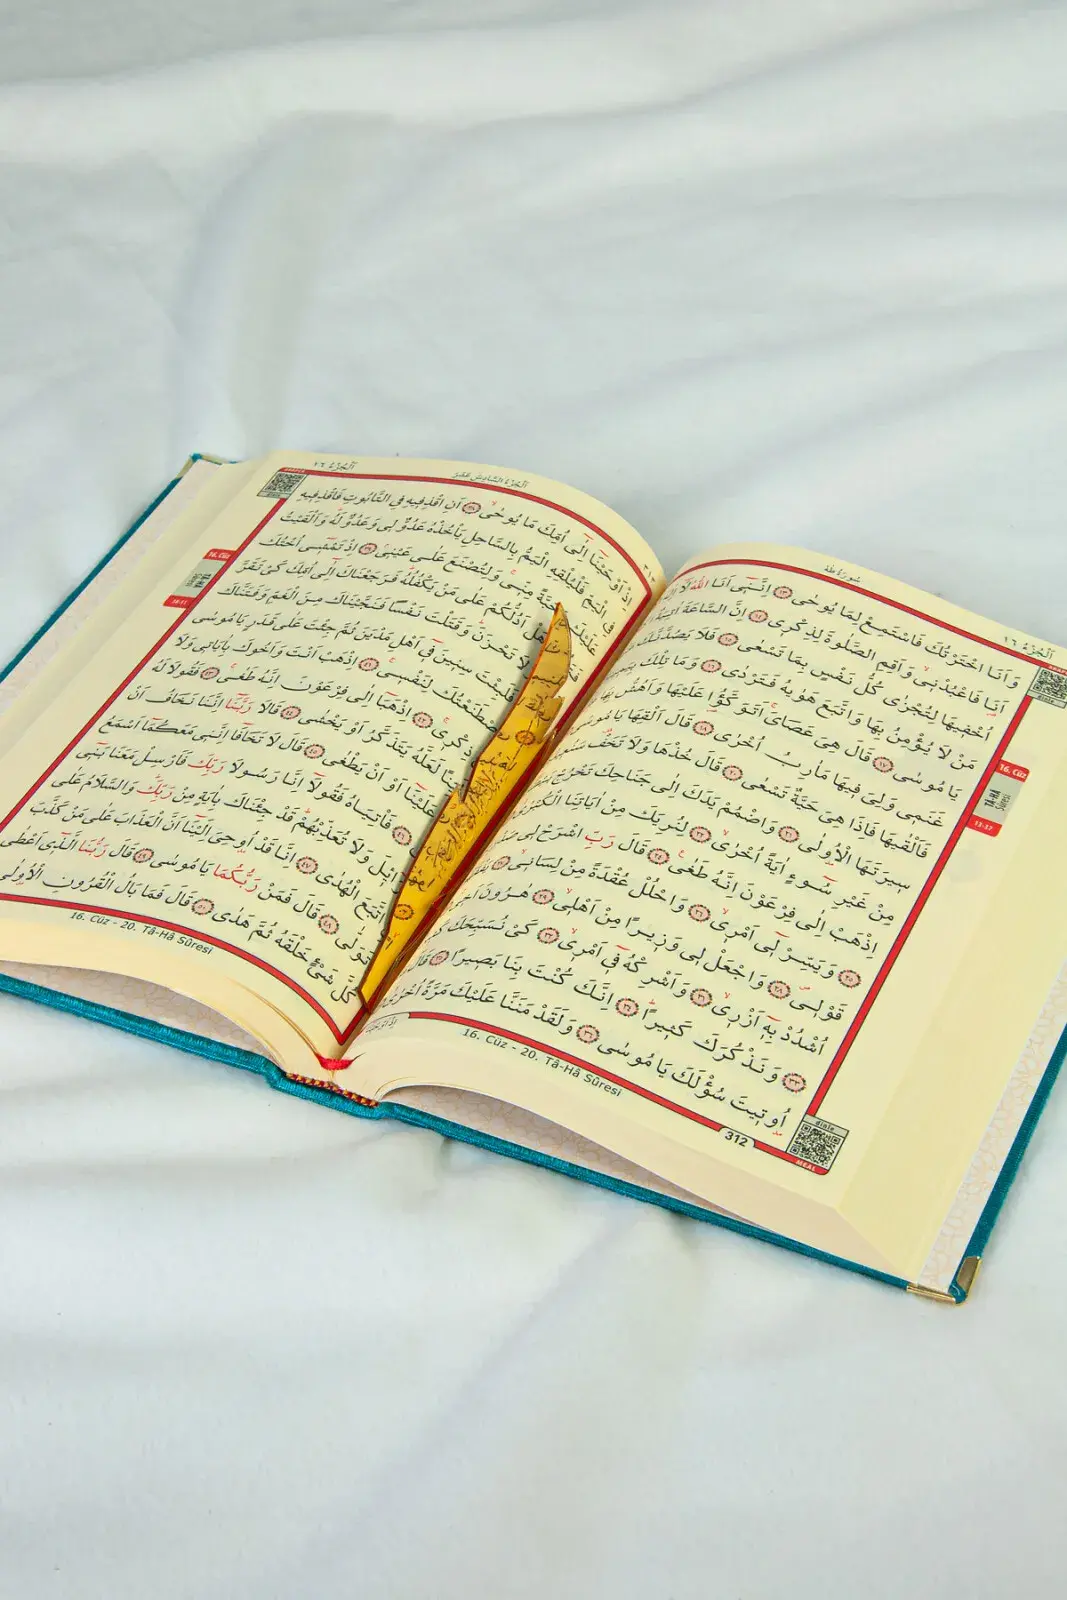 اَلْجُزْءُ ١٦
سُورَةُ طٰهٰ
وَاَنَا اخْتَرْتُكَ فَاسْتَمِعْ لِمَا يُوحٰى ﴿١٣﴾ اِنَّنِٓي اَنَا اللّٰهُ
اَنَا فَاعْبُدْنِي وَاَقِمِ الصَّلٰوةَ لِذِكْرِي ﴿١٤﴾ اِنَّ السَّاعَةَ اٰتِيَةٌ
اُخْفِيهَا لِتُجْزٰى كُلُّ نَفْسٍ بِمَا تَسْعٰى ﴿١٥﴾ فَلَا يَصُدَّنَّكَ
مَنْ لَا يُؤْمِنُ بِهَا وَاتَّبَعَ هَوٰيهُ فَتَرْدٰى ﴿١٦﴾ وَمَا تِلْكَ
يَا مُوسٰى ﴿١٧﴾ قَالَ هِيَ عَصَايَ اَتَوَكَّؤُا عَلَيْهَا وَاَهُشُّ بِهَا
غَنَمِي وَلِيَ فِيهَا مَاٰرِبُ اُخْرٰى ﴿١٨﴾ قَالَ اَلْقِهَا يَا مُوسٰى
فَاَلْقٰيهَا فَاِذَا هِيَ حَيَّةٌ تَسْعٰى ﴿٢٠﴾ قَالَ خُذْهَا وَلَا تَخَفْ
سِيرَتَهَا الْاُولٰى ﴿٢١﴾ وَاضْمُمْ يَدَكَ اِلٰى جَنَاحِكَ تَخْرُجْ
مِنْ غَيْرِ سُٓوءٍ اٰيَةً اُخْرٰى ﴿٢٢﴾ لِنُرِيَكَ مِنْ اٰيَاتِنَا الْكُبْرٰى
اِذْهَبْ اِلٰى فِرْعَوْنَ اِنَّهُ طَغٰى ﴿٢٤﴾ قَالَ رَبِّ اشْرَحْ لِي
﴿٢٥﴾ وَيَسِّرْ لِٓي اَمْرِي ﴿٢٦﴾ وَاحْلُلْ عُقْدَةً مِنْ لِسَانِي ﴿٢٧﴾
قَوْلِي ﴿٢٨﴾ وَاجْعَلْ لِي وَزِيرًا مِنْ اَهْلِي ﴿٢٩﴾ هٰرُونَ
اُشْدُدْ بِهِٓ اَزْرِي ﴿٣١﴾ وَاَشْرِكْهُ فِٓي اَمْرِي ﴿٣٢﴾ كَيْ نُسَبِّحَكَ
﴿٣٣﴾ وَنَذْكُرَكَ كَثِيرًا ﴿٣٤﴾ اِنَّكَ كُنْتَ بِنَا بَصِيرًا ﴿٣٥﴾ قَالَ
اُوتِيتَ سُؤْلَكَ يَا مُوسٰى ﴿٣٦﴾ وَلَقَدْ مَنَنَّا عَلَيْكَ مَرَّةً اُخْرٰى
16. Cüz
TÂ-HÂ
Sûresi
13-37
16. Cüz - 20. Tâ-Hâ Sûresi
312
dinle
MEAL
اَلْجُزْءُ السَّادِسَ عَشَرَ
اَلْجُزْءُ ١٦
اِذْ اَوْحَيْنَٓا اِلٰٓى اُمِّكَ مَا يُوحٰى ﴿٣٨﴾ اَنِ اقْذِفِيهِ فِي التَّابُوتِ فَاقْذِفِيهِ
الْيَمِّ فَلْيُلْقِهِ الْيَمُّ بِالسَّاحِلِ يَأْخُذْهُ عَدُوٌّ لِي وَعَدُوٌّ لَهُ وَاَلْقَيْتُ
مَحَبَّةً مِنِّي وَلِتُصْنَعَ عَلٰى عَيْنِي ﴿٣٩﴾ اِذْ تَمْشِٓي اُخْتُكَ
هَلْ اَدُلُّكُمْ عَلٰى مَنْ يَكْفُلُهُ فَرَجَعْنَاكَ اِلٰٓى اُمِّكَ كَيْ تَقَرَّ
لَا تَحْزَنَ وَقَتَلْتَ نَفْسًا فَنَجَّيْنَاكَ مِنَ الْغَمِّ وَفَتَنَّاكَ
فَلَبِثْتَ سِنِينَ فِٓي اَهْلِ مَدْيَنَ ثُمَّ جِئْتَ عَلٰى قَدَرٍ يَا مُوسٰى
اصْطَنَعْتُكَ لِنَفْسِي ﴿٤١﴾ اِذْهَبْ اَنْتَ وَاَخُوكَ بِاٰيَاتِي وَلَا
ذِكْرِي ﴿٤٢﴾ اِذْهَبَٓا اِلٰى فِرْعَوْنَ اِنَّهُ طَغٰى ﴿٤٣﴾ فَقُولَا لَهُ
لَيِّنًا لَعَلَّهُ يَتَذَكَّرُ اَوْ يَخْشٰى ﴿٤٤﴾ قَالَا رَبَّنَٓا اِنَّنَا نَخَافُ اَنْ
عَلَيْنَٓا اَوْ اَنْ يَطْغٰى ﴿٤٥﴾ قَالَ لَا تَخَافَٓا اِنَّنِي مَعَكُمَٓا اَسْمَعُ
﴿٤٦﴾ فَأْتِيَاهُ فَقُولَٓا اِنَّا رَسُولَا رَبِّكَ فَاَرْسِلْ مَعَنَا بَنِٓي
وَلَا تُعَذِّبْهُمْ قَدْ جِئْنَاكَ بِاٰيَةٍ مِنْ رَبِّكَ وَالسَّلَامُ عَلٰى
اتَّبَعَ الْهُدٰى ﴿٤٧﴾ اِنَّا قَدْ اُوحِيَ اِلَيْنَٓا اَنَّ الْعَذَابَ عَلٰى مَنْ كَذَّبَ
تَوَلّٰى ﴿٤٨﴾ قَالَ فَمَنْ رَبُّكُمَا يَا مُوسٰى ﴿٤٩﴾ قَالَ رَبُّنَا الَّذِٓي اَعْطٰى
كُلَّ شَيْءٍ خَلْقَهُ ثُمَّ هَدٰى ﴿٥٠﴾ قَالَ فَمَا بَالُ الْقُرُونِ الْاُولٰى
16. Cüz
16. Cüz - 20. Tâ-Hâ Sûresi